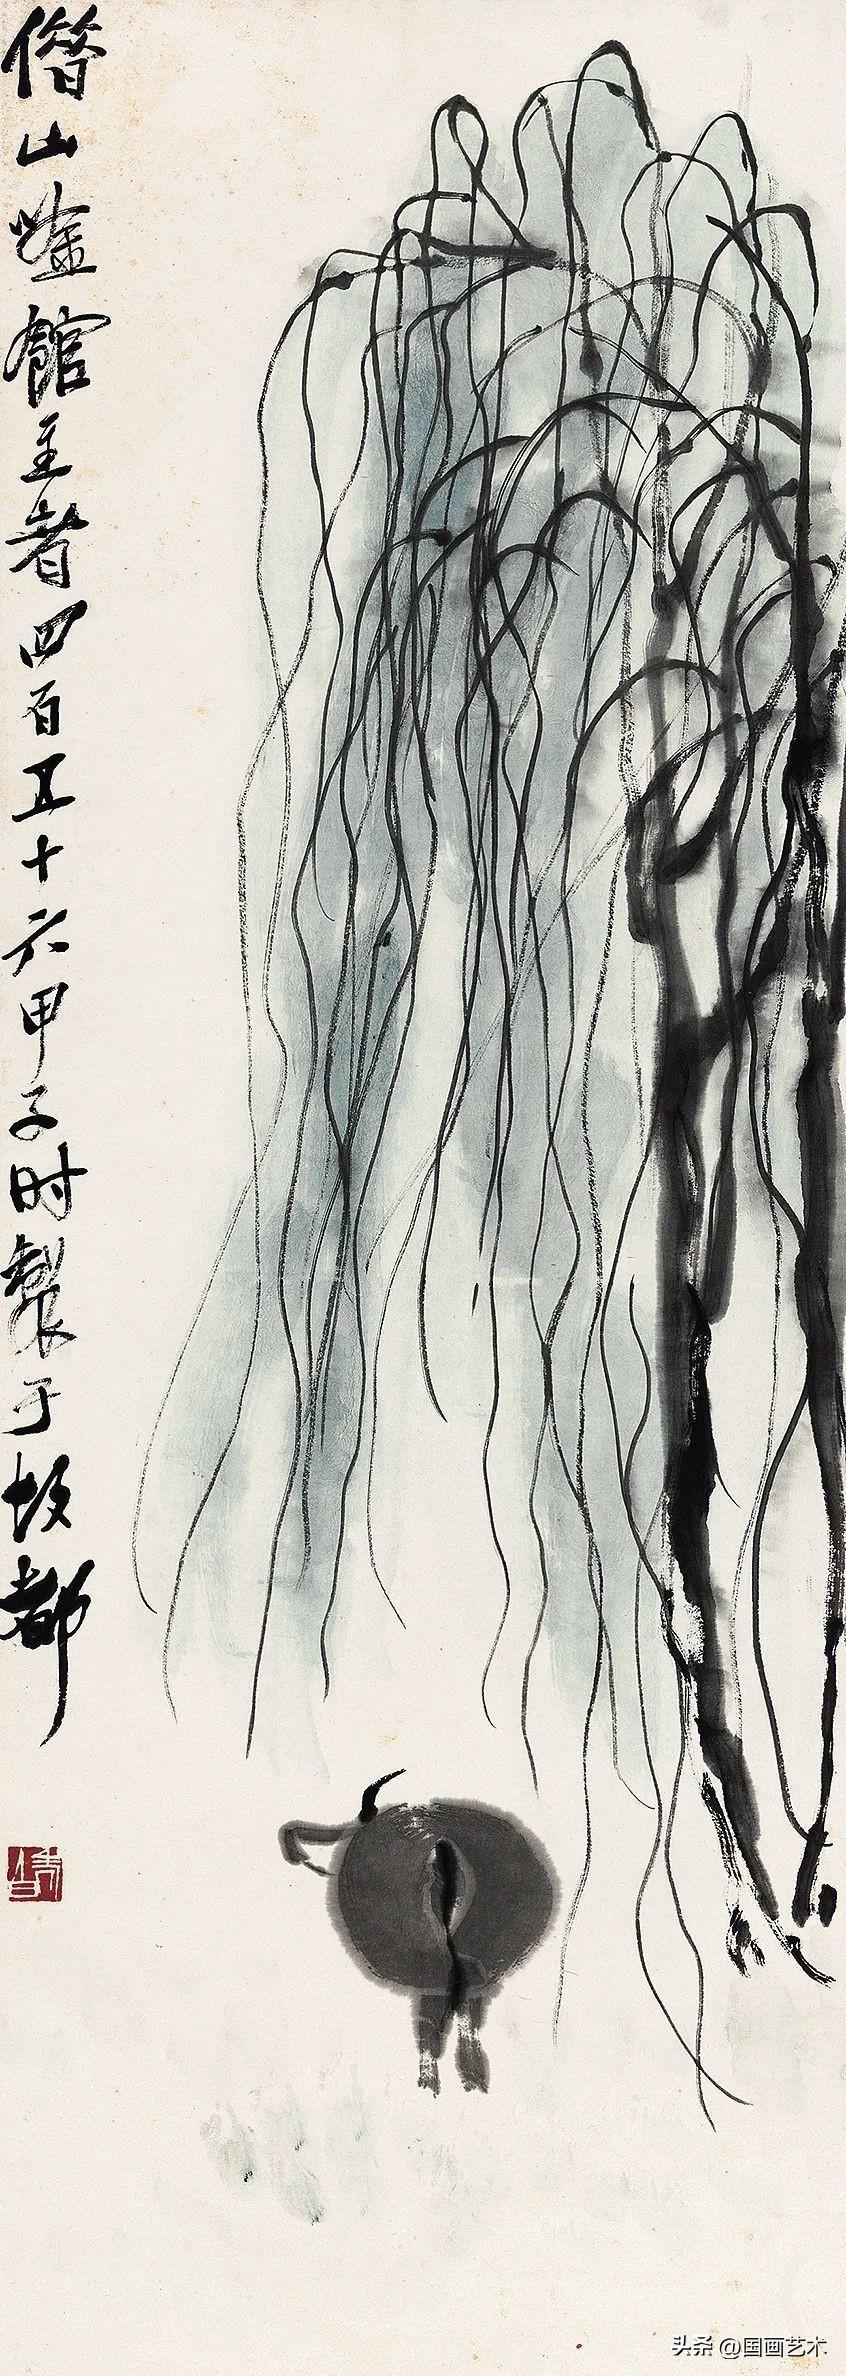 借山唫館主者四百五十六甲子时製于故都
头条 @国画艺术